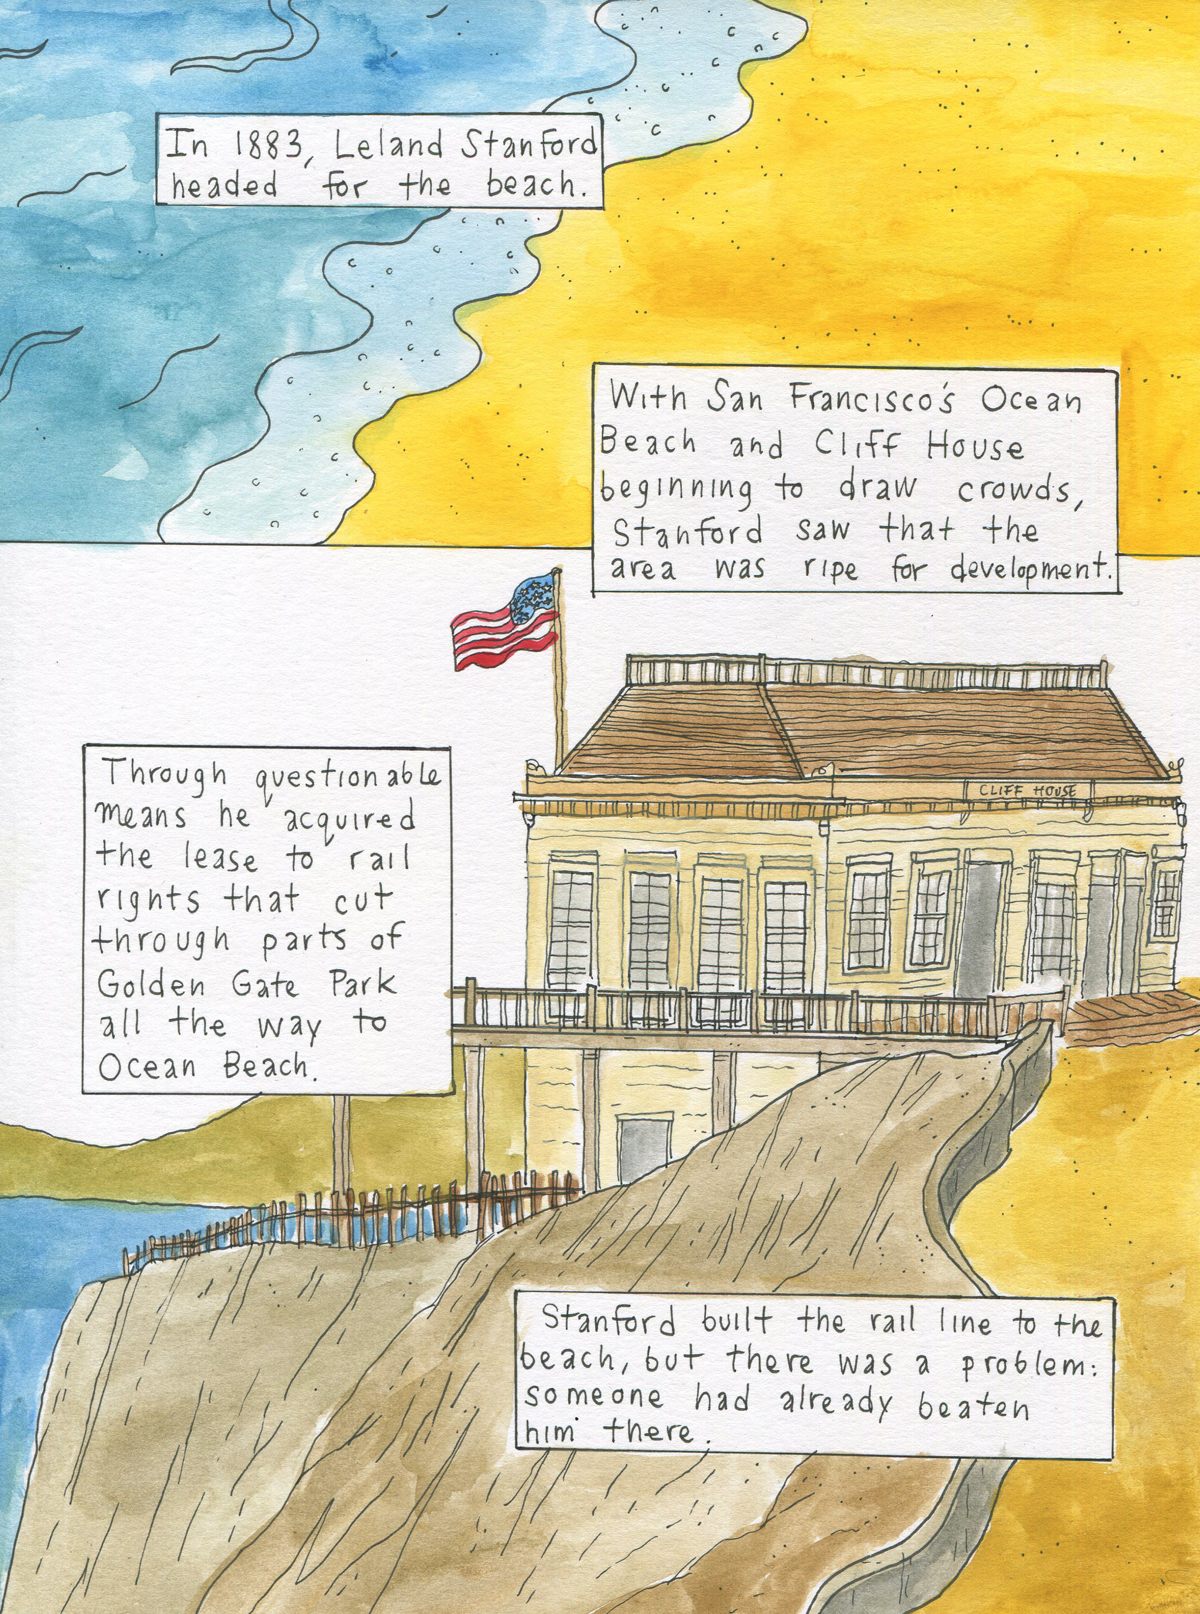 In 1883, Leland Stanford
headed for the beach.
With San Francisco's Ocean
Beach and Cliff House
beginning to draw crowds,
Stanford saw that the
area was ripe for development.
CLIFF HOUSE
Through questionable
means he acquired
the lease to rail
rights that cut
through parts of
Golden Gate Park
all the way to
Ocean Beach.
Stanford built the rail line to the
beach, but there was a problem:
someone had already beaten
him there.